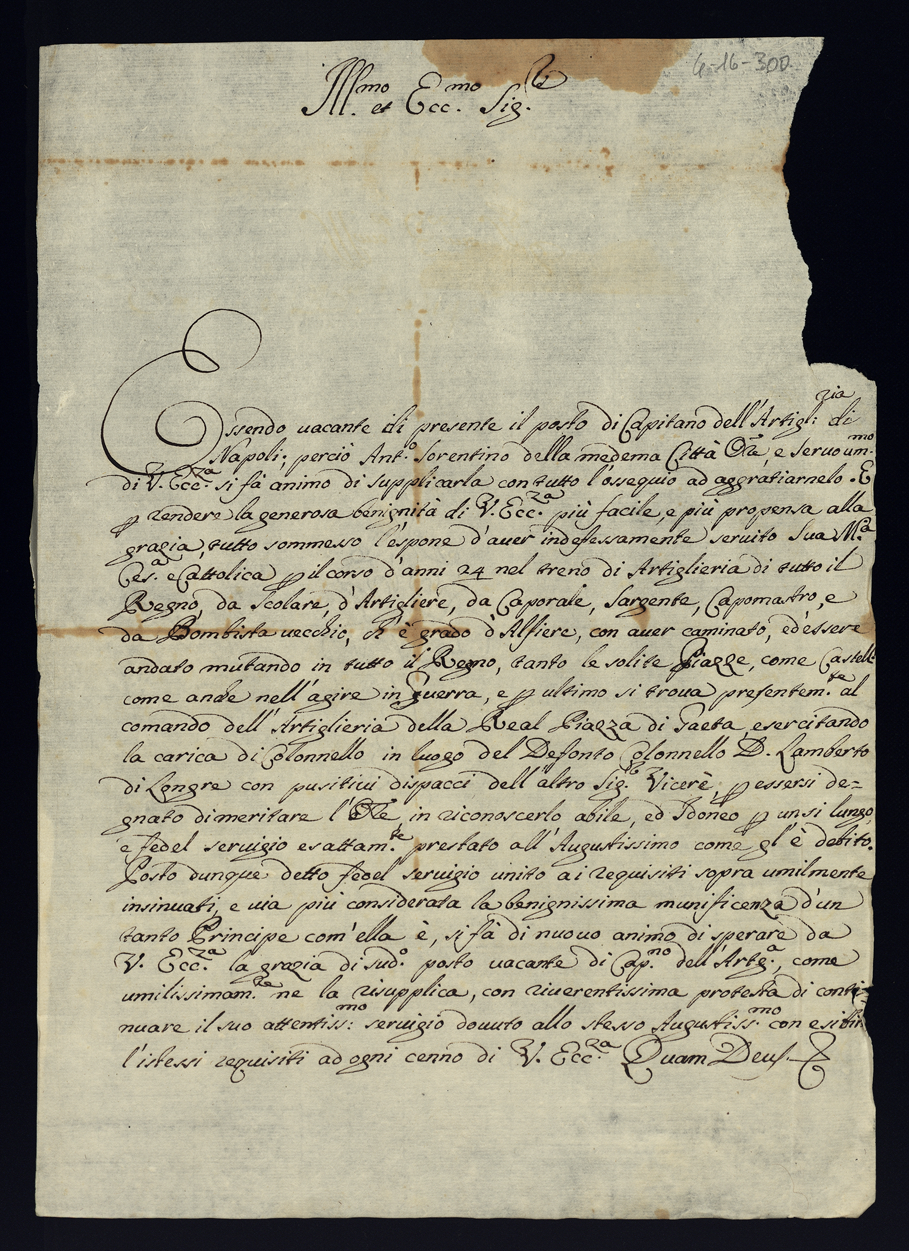 6-16-300
Ill.mo et Ecc.mo Sig.re
Essendo vacante di presente il posto di Capitano dell'Artigl:ria di
Napoli: perciò Ant.o Sorentino della medema Città Ore, e servo um.mo
di V. Ecc.za si fà animo di supplicarla con tutto l'ossequio ad aggratiarnelo. E
p rendere la generosa benignità di V. Ecc.za più facile, e più propensa alla
grazia, tutto sommesso l'espone d'auer indefessamente seruito Sua M.a
Ces.a e Cattolica p il corso d'anni 24 nel treno di Artiglieria di tutto il
Regno, da Scolare, d'Artigliere, da Caporale, Sargente, Capomastro, e
da Bombista uecchio, ch'è grado d'Alfiere, con auer caminato, ed'essere
andato mutando in tutto il Regno, tanto le solite Piazze, come Castell
come anche nell'agire in guerra, e p ultimo si troua presentem.te al
comando dell'Artiglieria della Real Piazza di Gaeta, esercitando
la carica di Colonnello in luogo del Defonto Colonnello D. Lamberto
di Longre con pusitiui dispacci dell'altro Sig.re Vicerè, p essersi de=
gnato di meritare l'Ore, in riconoscerlo abile, ed Idoneo p un si lungo,
e fedel seruigio esattam.te prestato all'Augustissimo come gl'è debito.
Posto dunque detto fedel seruigio unito ai requisiti sopra umilmente
insinuati, e uia più considerata la benignissima munificenza d'un
tanto Principe com'ella è, si fà di nuouo animo di sperare da
V. Ecc.za la grazia di sud.o posto uacante di Cap.no dell'Artig.a, come
umilissimam.te ne la risupplica, con riuerentissima protesta di conti-
nuare il suo attentiss:mo seruigio douuto allo stesso Augustiss.mo con esibir
l'istessi requisiti ad ogni cenno di V. Ecc.za Quam Deus